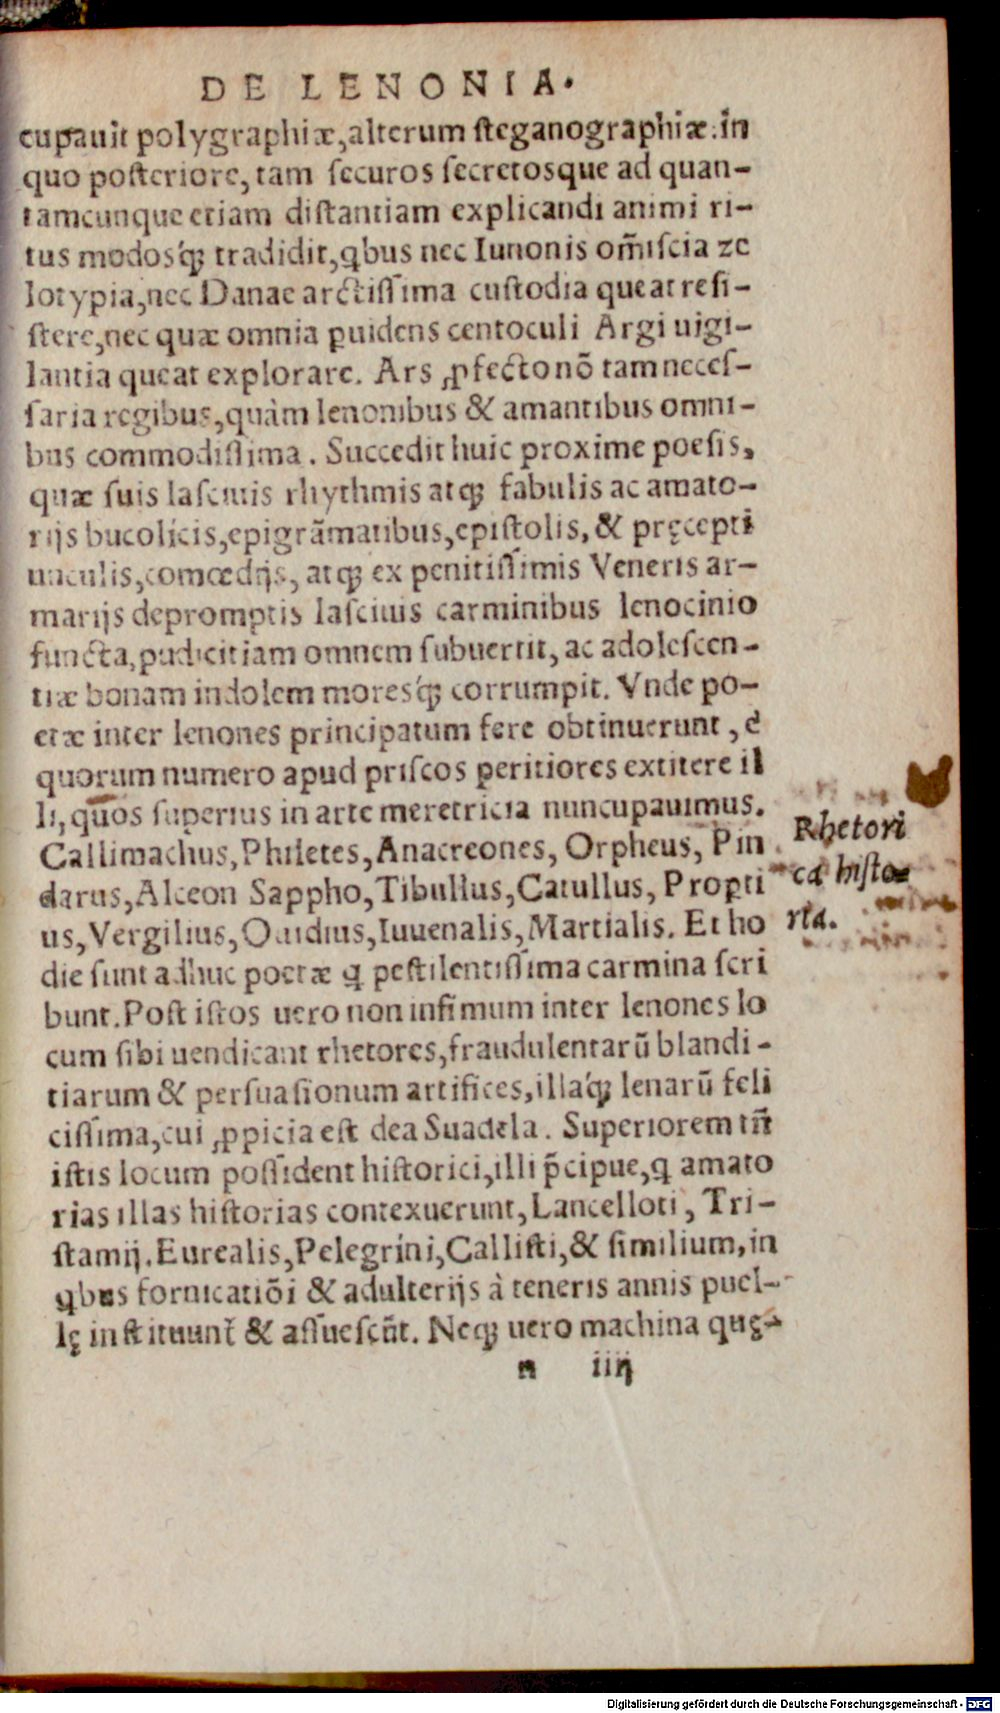 DE LENONIA.
cupauit polygraphiæ,alterum steganographiæ.in
quo posteriore, tam securos secretosque ad quan-
tamcunque etiam distantiam explicandi animi ri-
tus modosq́ꝫ tradidit,qbus nec Iunonis om̃iscia ze
lotypia,nec Danae arctissima custodia queat resi-
stere,nec quæ omnia ꝑuidens centoculi Argi uigi-
lantia queat explorare. Ars ꝓfecto nõ tam neces-
saria regibus,quàm lenonibus & amantibus omni-
bus commodissima. Succedit huic proxime poesis,
quæ suis lasciuis rhythmis atqꝫ fabulis ac amato-
rijs bucolicis,epigrãmatibus,epistolis,& pręcepti
unculis,comœdijs, atqꝫ ex penitissimis Veneris ar-
marijs depromptis lasciuis carminibus lenocinio
functa,pudicitiam omnem subuertit, ac adolescen-
tiæ bonam indolem moresq́ꝫ corrumpit. Vnde po-
etæ inter lenones principatum fere obtinuerunt, è
quorum numero apud priscos peritiores extitere il
li,quos superius in arte meretricia nuncupauimus.
Callimachus,Philetes,Anacreones, Orpheus, Pin
darus,Alceon Sappho,Tibullus,Catullus, Proꝑti
us,Vergilius,Ouidius,Iuuenalis,Martialis. Et ho
die sunt adhuc poetæ q pestilentissima carmina scri
bunt.Post istos uero non infimum inter lenones lo
cum sibi uendicant rhetores,fraudulentarũ blandi-
tiarum & persuasionum artifices,illaq́ꝫ lenarũ feli
cissima,cui ꝓpicia est dea Suadela. Superiorem tñ
istis locum possident historici,illi p̃cipue,q amato
rias illas historias contexuerunt,Lancelloti, Tri-
stamij.Eurealis,Pelegrini,Callisti,& similium,in
qbus fornicatiõi & adulterijs à teneris annis puel-
lę instituunt̃ & assuescũt. Neqꝫ uero machina quę-
n iiij
Rhetori
ca histo-
ria.
Digitalisierung gefördert durch die Deutsche Forschungsgemeinschaft - DFG